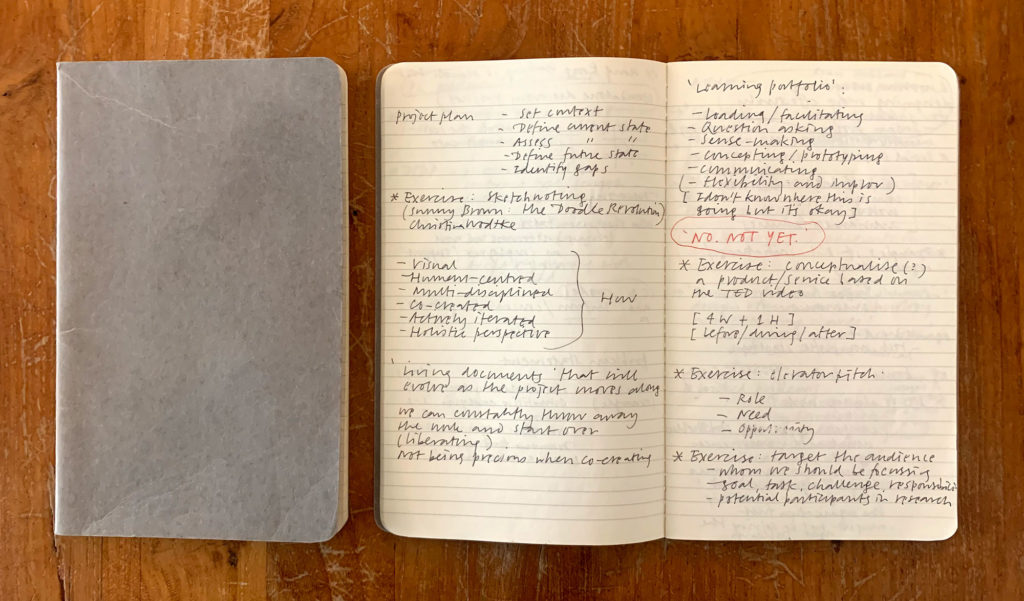 Project plan - Set context
- Define current state
- Assess " "
- Define future state
- Identify gaps
* Exercise: Sketchnoting
(Sunny Brown: the Doodle Revolution)
Christina Wodtke
- Visual
- Human-centred
- Multi-disciplined
- Co-created
- Actively iterated
- Holistic perspective
How
'Living documents' that will
evolve as the project moves along
We can constantly throw away
the work and start over
(liberating)
Not being precious when co-creating
'Learning portfolio':
- Leading/facilitating
- Question asking
- Sense-making
- Concepting/prototyping
- Communicating
(- Flexibility and improv)
[I don't know where this is
going but it's okay]
'NO. NOT YET.'
* Exercise: conceptualise(?)
a product/service based on
the TED video
[4W + 1H]
[before/during/after]
* Exercise: elevator pitch.
- Role
- Need
- Opportunity
* Exercise: target the audience
- whom we should be focussing
- goal, task, challenge, responsibilit
- potential participants in research